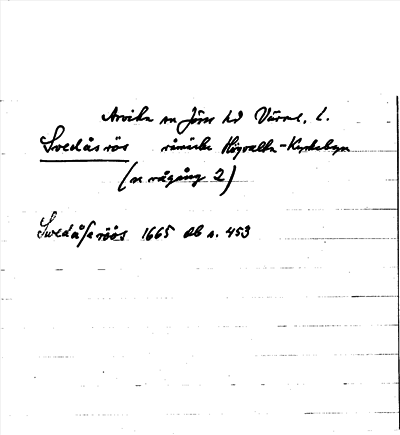 Arvika sn Jösse hd Värml. l.
Svedåsrös råmärke Högvalta-Kyrkebyn
(se rågång 2)
Swedåſa röös 1665 Ob s. 453